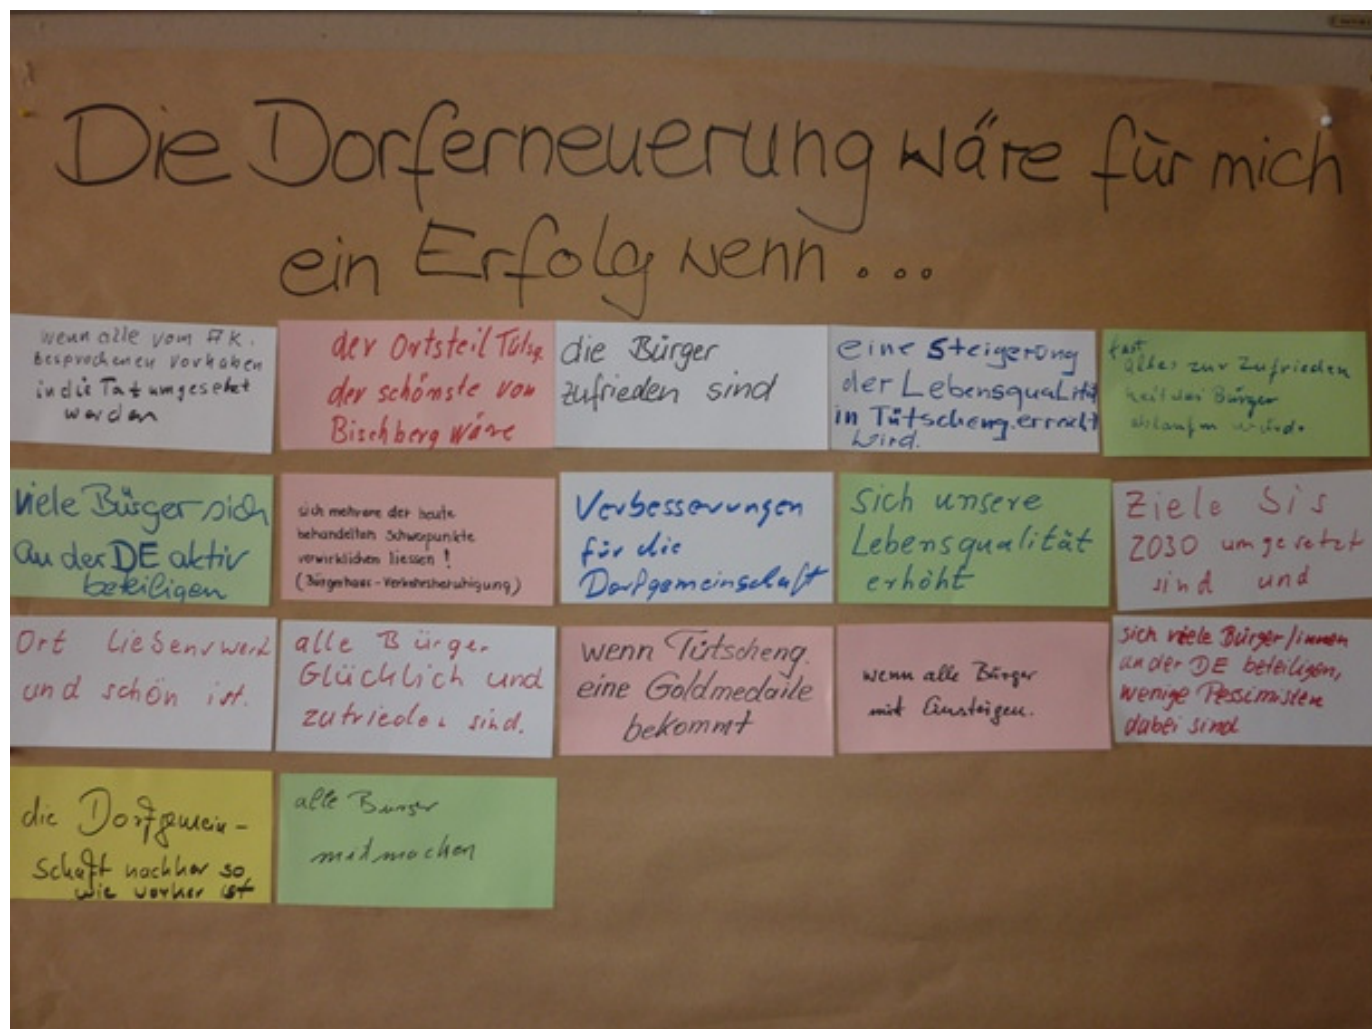 Die Dorferneuerung wäre für mich
ein Erfolg wenn ...
wenn alle vom AK.
besprochenen Vorhaben
in die Tat umgesetzt
werden
der Ortsteil Tütsg.
der schönste von
Bischberg wäre
die Bürger
zufrieden sind
eine Steigerung
der Lebensqualität
in Tütscheng. erreicht
wird.
fast
alles zur Zufrieden
heit der Bürger
ablaufen würde.
viele Bürger sich
an der DE aktiv
beteiligen
sich mehrere der heute
behandelten Schwerpunkte
verwirklichen liessen !
(Bürgerhaus-Verkehrsberuhigung)
Verbesserungen
für die
Dorfgemeinschaft
sich unsere
Lebensqualität
erhöht
Ziele bis
2030 umgesetzt
sind und
Ort liebenswert
und schön ist.
alle Bürger
Glücklich und
zufrieden sind.
wenn Tütscheng.
eine Goldmedaile
bekommt
wenn alle Bürger
mit Einsteigen.
sich viele Bürger/innen
an der DE beteiligen,
wenige Pessimisten
dabei sind
die Dorfgemein-
schaft nachher so
wie vorher ist
alle Bürger
mitmachen